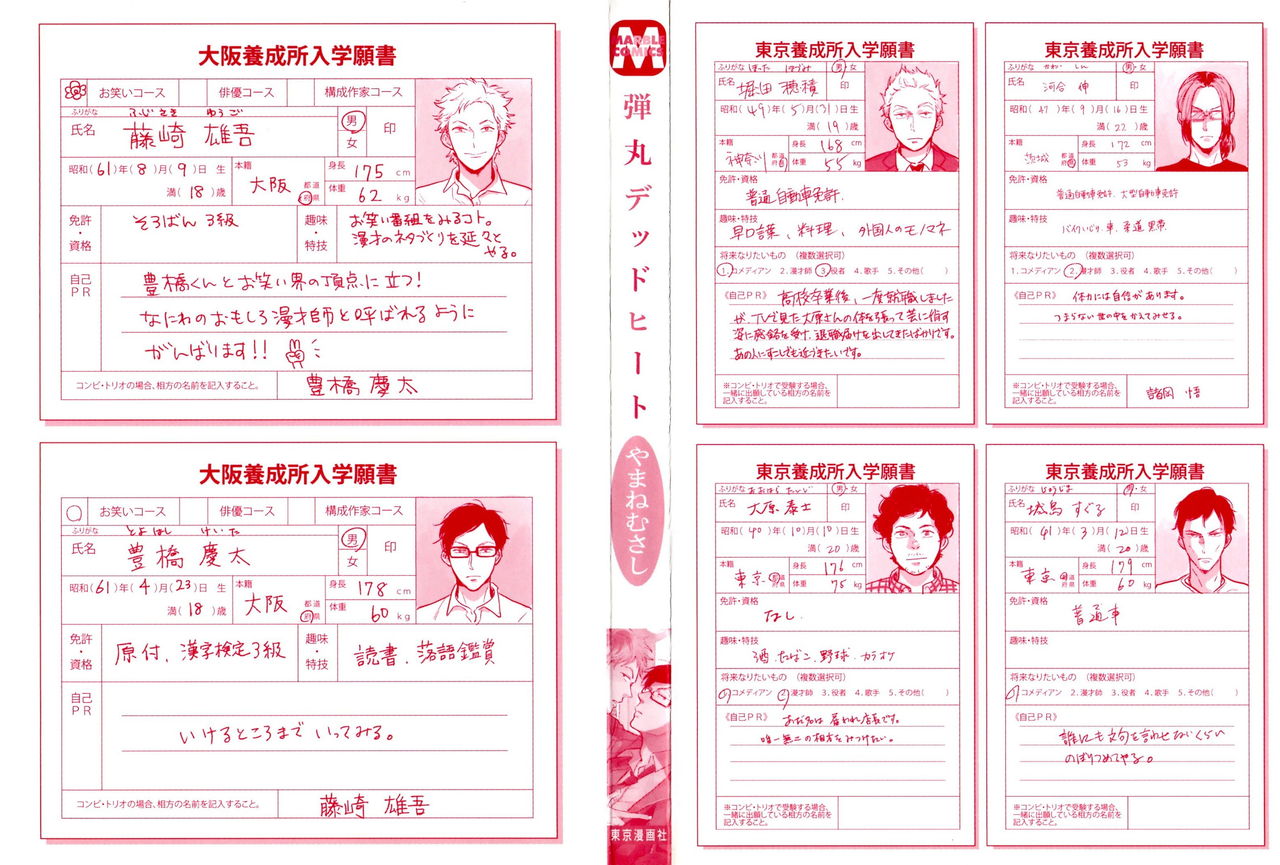 大阪養成所入学願書
お笑いコース 俳優コース 構成作家コース
ふりがな ふじさき ゆうご
氏名 藤崎 雄吾 男・女 印
昭和(61)年(8)月(9)日 生
満(18)歳
本籍 大阪 都道府県
身長 175 cm
体重 62 kg
免許・資格 そろばん 3級
趣味・特技 お笑い番組をみるコト。
漫才のネタづくりを延々と
やる。
自己PR 豊橋くんとお笑い界の頂点に立つ!
なにわのおもしろ漫才師と呼ばれるように
がんばります!!
コンビ・トリオの場合、相方の名前を記入すること。 豊橋 慶太
大阪養成所入学願書
○ お笑いコース 俳優コース 構成作家コース
ふりがな とよはし けいた
氏名 豊橋 慶太 男・女 印
昭和(61)年(4)月(23)日 生
満(18)歳
本籍 大阪 都道府県
身長 178 cm
体重 60 kg
免許・資格 原付、漢字検定3級
趣味・特技 読書、落語鑑賞
自己PR いけるところまで いってみる。
コンビ・トリオの場合、相方の名前を記入すること。 藤崎 雄吾
MARBLE COMICS
弾丸デッドヒート
やまねむさし
東京漫画社
東京養成所入学願書
ふりがな ほった ほづみ 男・女
氏名 堀田 穂積 印
昭和(49)年(5)月(31)日生
満(19)歳
本籍 神奈川 都道府県
身長 168 cm
体重 55 kg
免許・資格
普通自動車免許
趣味・特技
早口言葉、料理、外国人のモノマネ
将来なりたいもの (複数選択可)
1.コメディアン 2.漫才師 3.役者 4.歌手 5.その他( )
《自己PR》 高校卒業後、一度就職しました
が、TVで見た大原さんの体を張って芸に徹す
姿に感銘を受け、退職届けを出してきたばかりです。
あの人にすこしでも近づきたいです。
※コンビ・トリオで受験する場合、
一緒に出願している相方の名前を
記入すること。
東京養成所入学願書
ふりがな かわい しん 男・女
氏名 河合 伸 印
昭和(47)年(9)月(16)日生
満(22)歳
本籍 茨城 都道府県
身長 172 cm
体重 53 kg
免許・資格
普通自動車免許、大型自動車免許
趣味・特技
バイクいじり、車、柔道 黒帯
将来なりたいもの (複数選択可)
1.コメディアン 2.漫才師 3.役者 4.歌手 5.その他( )
《自己PR》 体力には自信があります。
つまらない世の中をかえてみせる。
※コンビ・トリオで受験する場合、
一緒に出願している相方の名前を
記入すること。
諸岡 悟
東京養成所入学願書
ふりがな おおはら たいし 男・女
氏名 大原 泰士 印
昭和(40)年(10)月(10)日生
満(20)歳
本籍 東京 都道府県
身長 176 cm
体重 75 kg
免許・資格
なし
趣味・特技
酒、たばこ、野球、カラオケ
将来なりたいもの (複数選択可)
1.コメディアン 2.漫才師 3.役者 4.歌手 5.その他( )
《自己PR》 あだ名は 雇われ店長です。
唯一無二の相方をみつけたい。
※コンビ・トリオで受験する場合、
一緒に出願している相方の名前を
記入すること。
東京養成所入学願書
ふりがな じょうじま 男・女
氏名 城島 すぐる 印
昭和(41)年(3)月(12)日生
満(20)歳
本籍 東京 都道府県
身長 179 cm
体重 60 kg
免許・資格
普通車
趣味・特技
将来なりたいもの (複数選択可)
1.コメディアン 2.漫才師 3.役者 4.歌手 5.その他( )
《自己PR》
誰にも文句を言わせないくらい
のぼりつめてやる。
※コンビ・トリオで受験する場合、
一緒に出願している相方の名前を
記入すること。